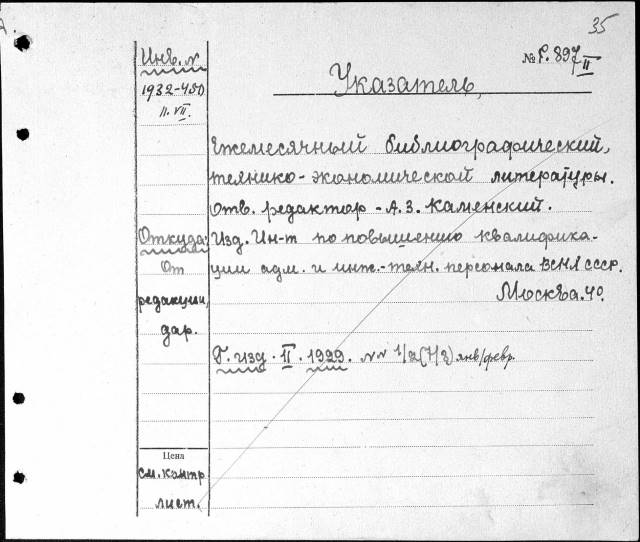 35
Инв. №
№ Р. 897
II
1932-450
11. VII.
Указатель,
Ежемесячный библиографический,
технико-экономической литературы.
Отв. редактор - А.З. Каменский.
Откуда:
Изд. Ин-т по повышению квалифика-
От
ции адм. и инж.-техн. персонала ВСНХ СССР.
редакции,
Москва. 4°.
дар.
Г. изд. II. 1929. №№ 1/2(7/8) янв/февр.
Цена
см. контр
лист.